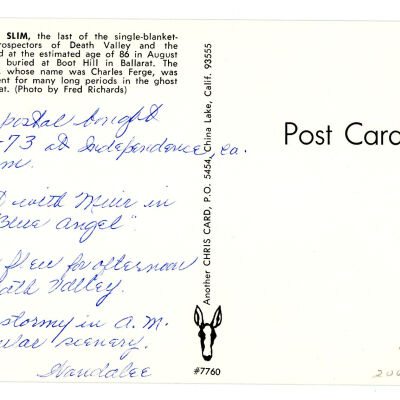 SLIM, the last of the single-blanket-
rospectors of Death Valley and the
d at the estimated age of 86 in August
buried at Boot Hill in Ballarat. The
, whose name was Charles Ferge, was
ent for many long periods in the ghost
at. (Photo by Fred Richards)
postal bought
-73 at Independence, Ca.
m.
with Muir in
Blue Angel".
flew for afternoon
ath Valley.
stormy in A.M.
war scenery.
Handalee
Another CHRIS CARD, P.O. 5454, China Lake, Calif. 93555
#7760
Post Card